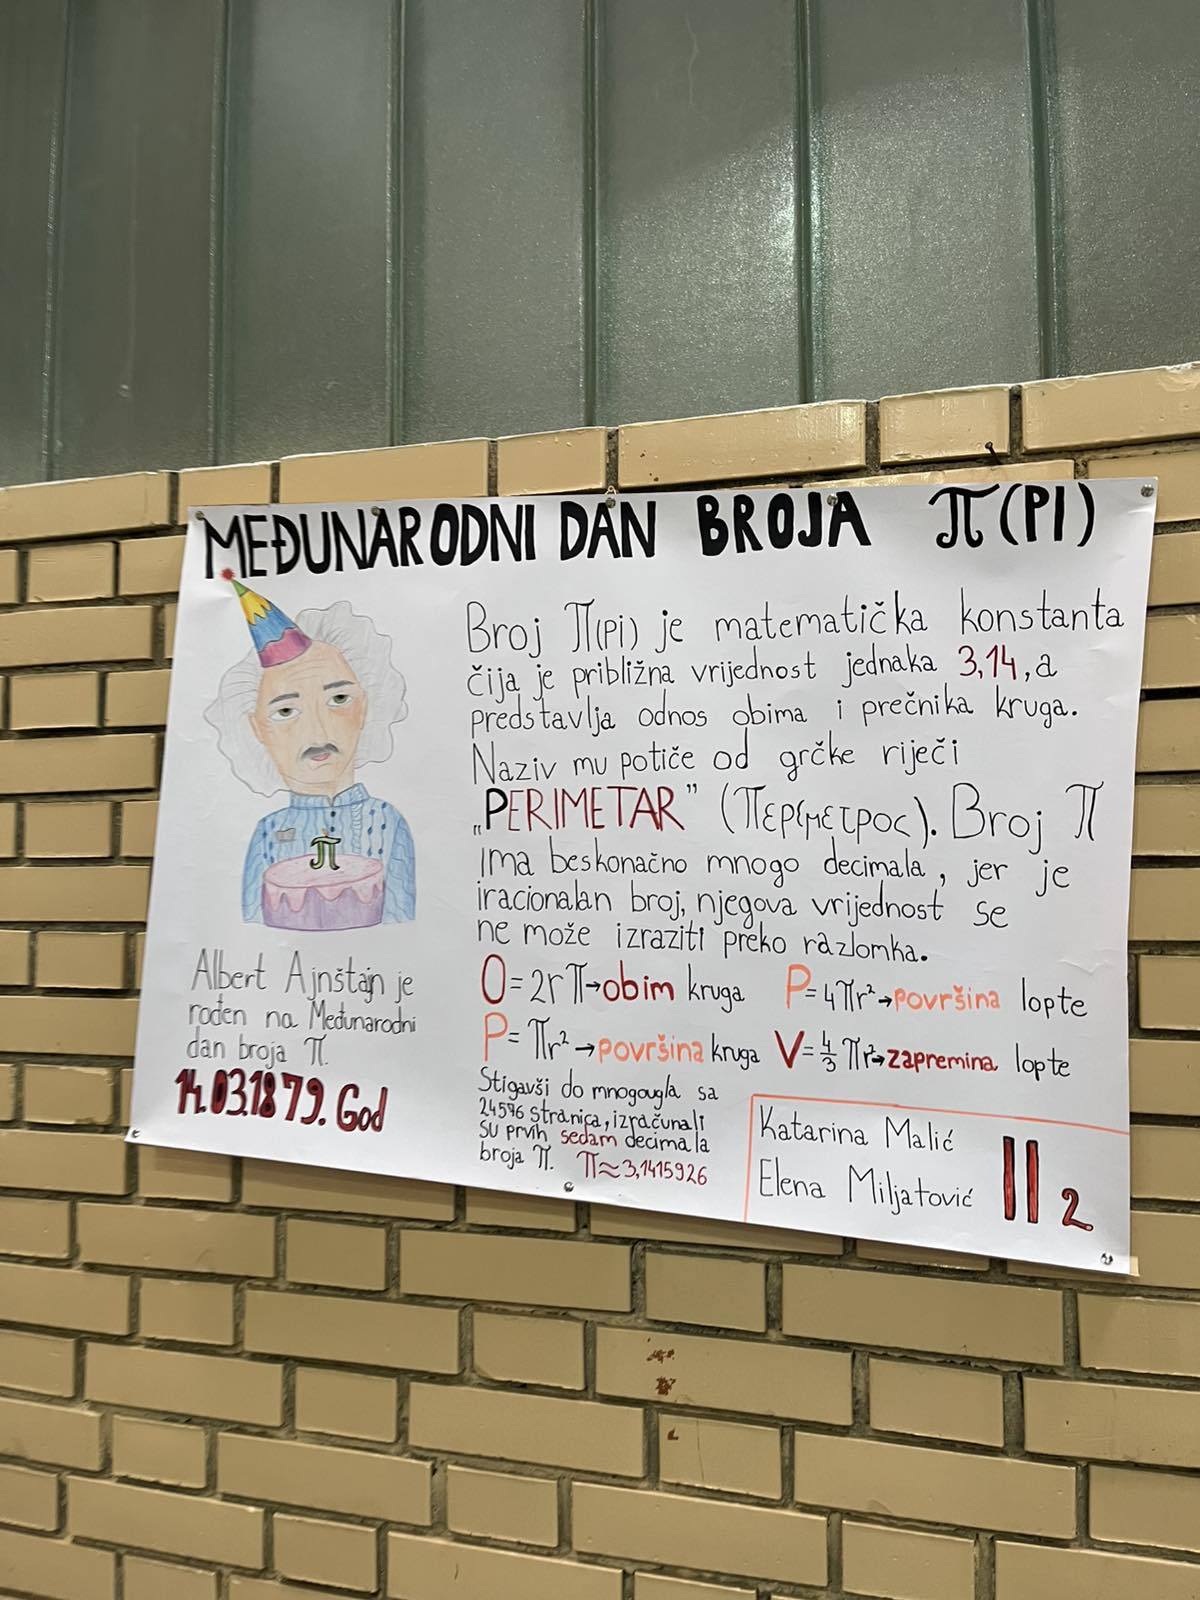 MEĐUNARODNI DAN BROJA π (PI)
Broj π(PI) je matematička konstanta
čija je približna vrijednost jednaka 3,14, a
predstavlja odnos obima i prečnika kruga.
Naziv mu potiče od grčke riječi
„PERIMETAR” (περίμετρος). Broj π
ima beskonačno mnogo decimala, jer je
iracionalan broj, njegova vrijednost se
ne može izraziti preko razlomka.
O=2rπ→obim kruga
P=4πr²→površina lopte
P=πr²→površina kruga
V=4/3πr²→zapremina lopte
Stigavši do mnogougla sa
24576 stranica, izračunali
su prvih sedam decimala
broja π. π≈3,1415926
π
Albert Ajnštajn je
rođen na Međunarodni
dan broja π.
14.03.1879. God
Katarina Malić
Elena Miljatović
II2